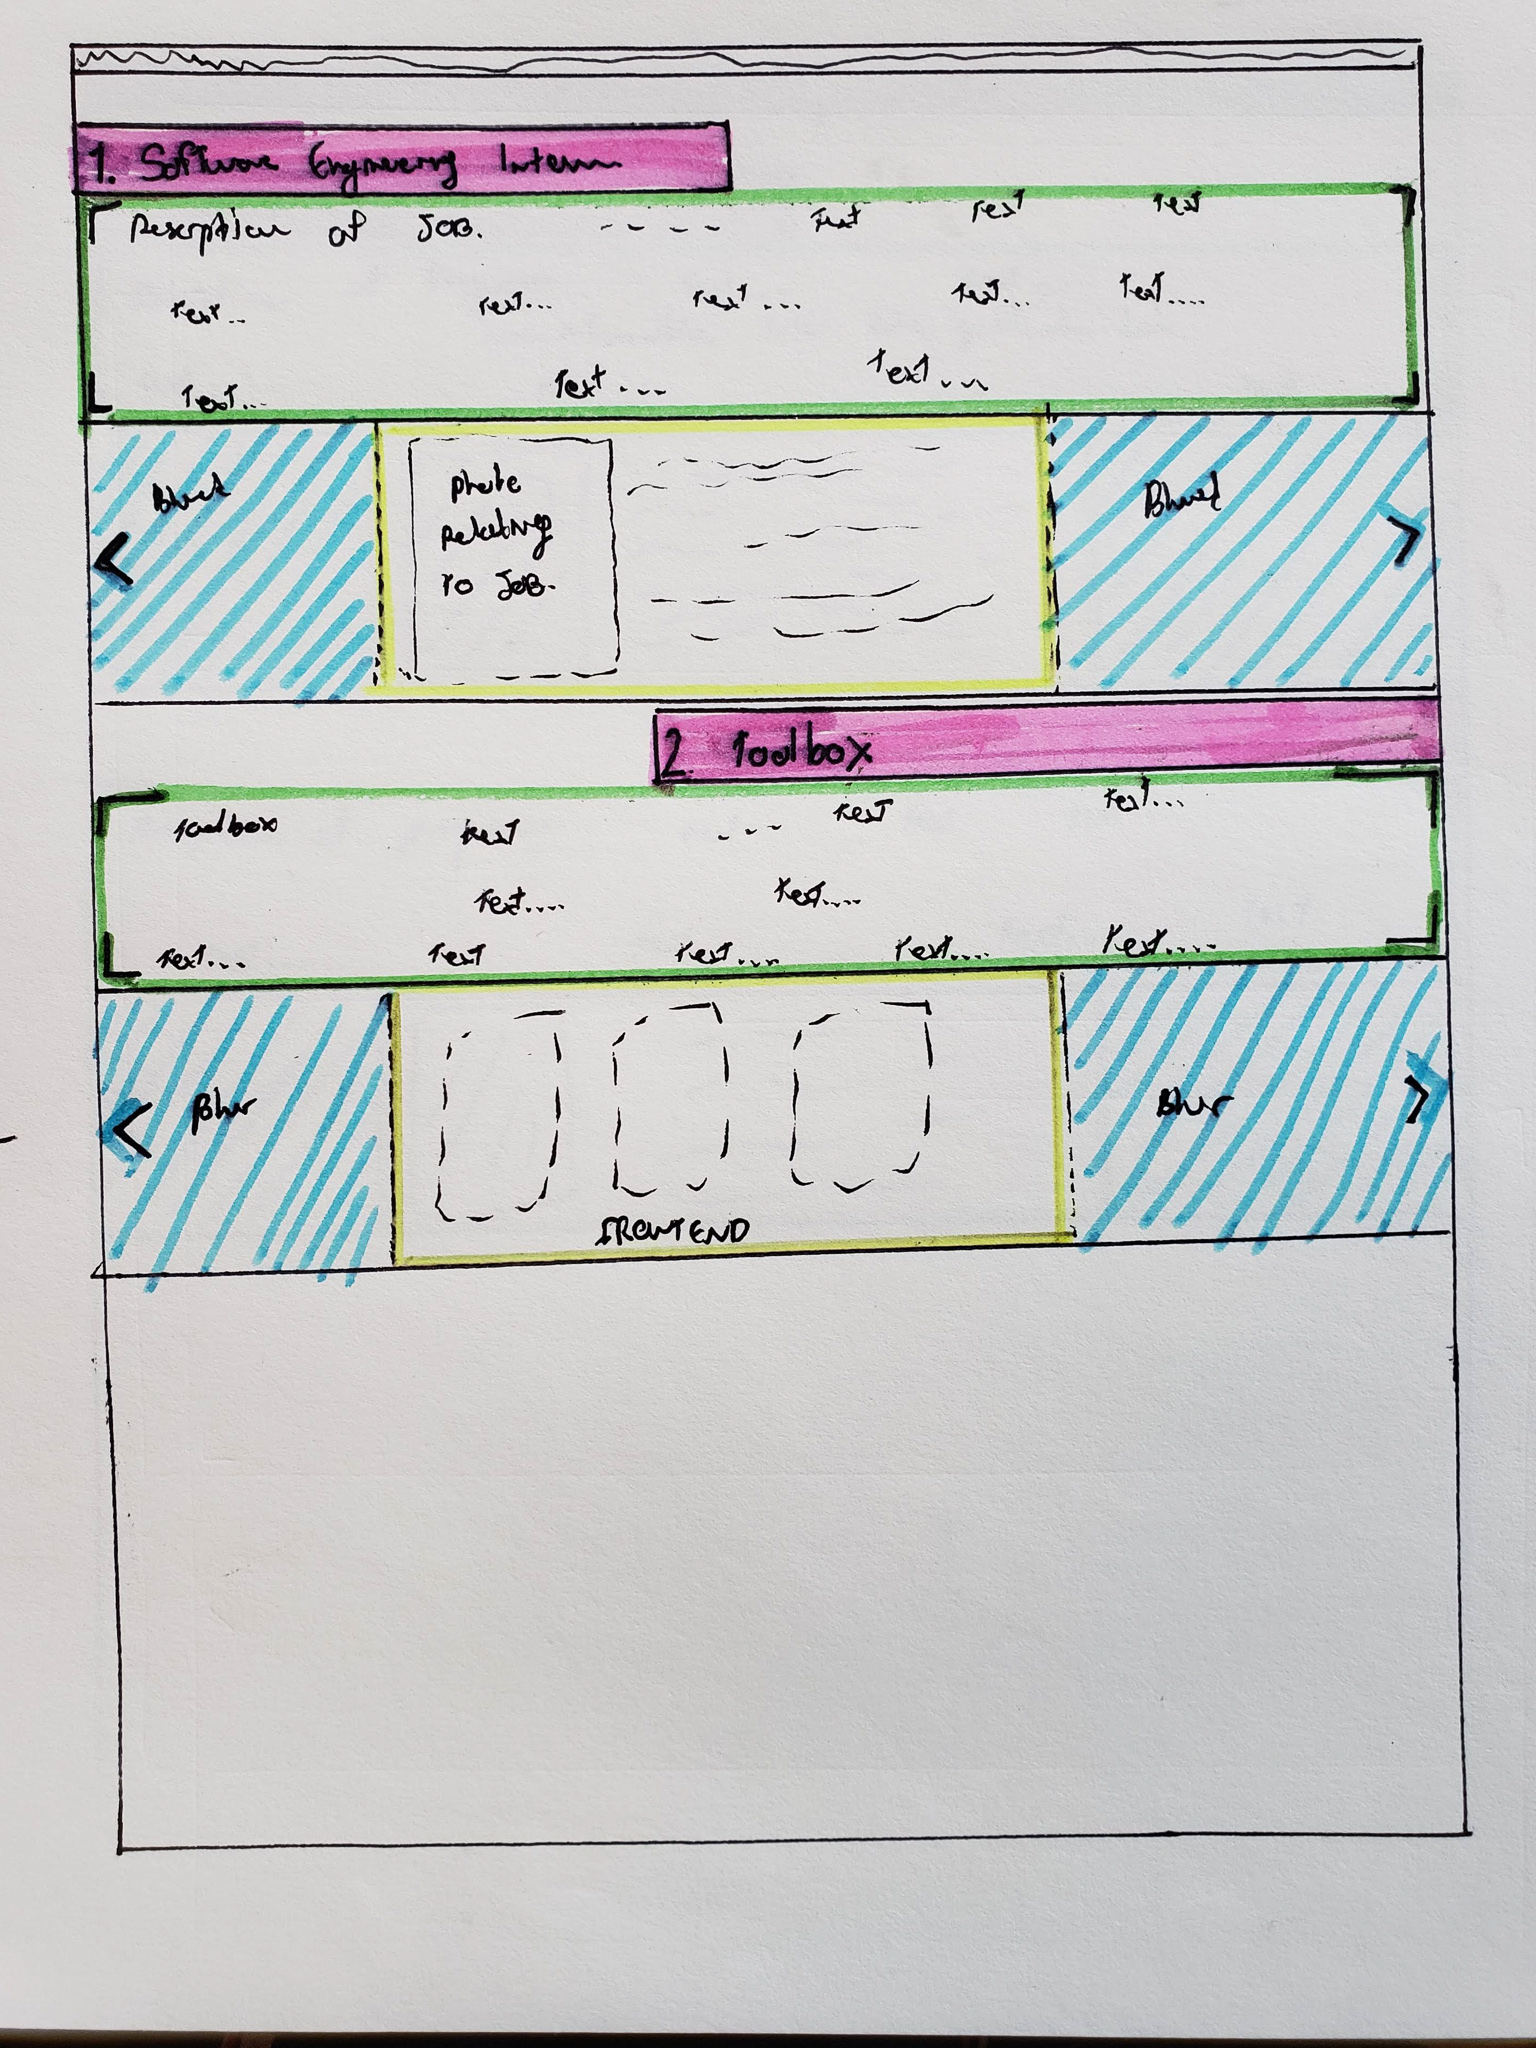 1. Software Engineering Intern
Description of JOB. - - - - Text Text Text
Text.. Text... Text ... Text... Text....
Text... Text ... Text ...
Blur
Photo
Relating
to JOB.
2. Toolbox
Toolbox Text - - - Text Text...
Text.... Text....
Text... Text Text.... Text.... Text....
Blur
Blur
FRONTEND